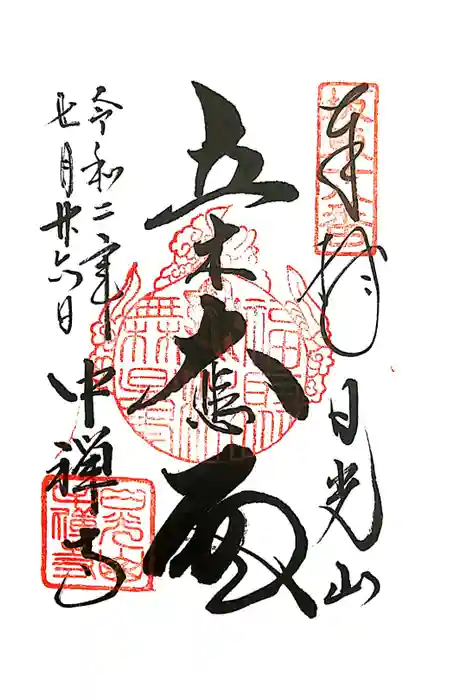 奉拝 日光山
立木大悲閣
令和二年
七月廿六日
中禅寺